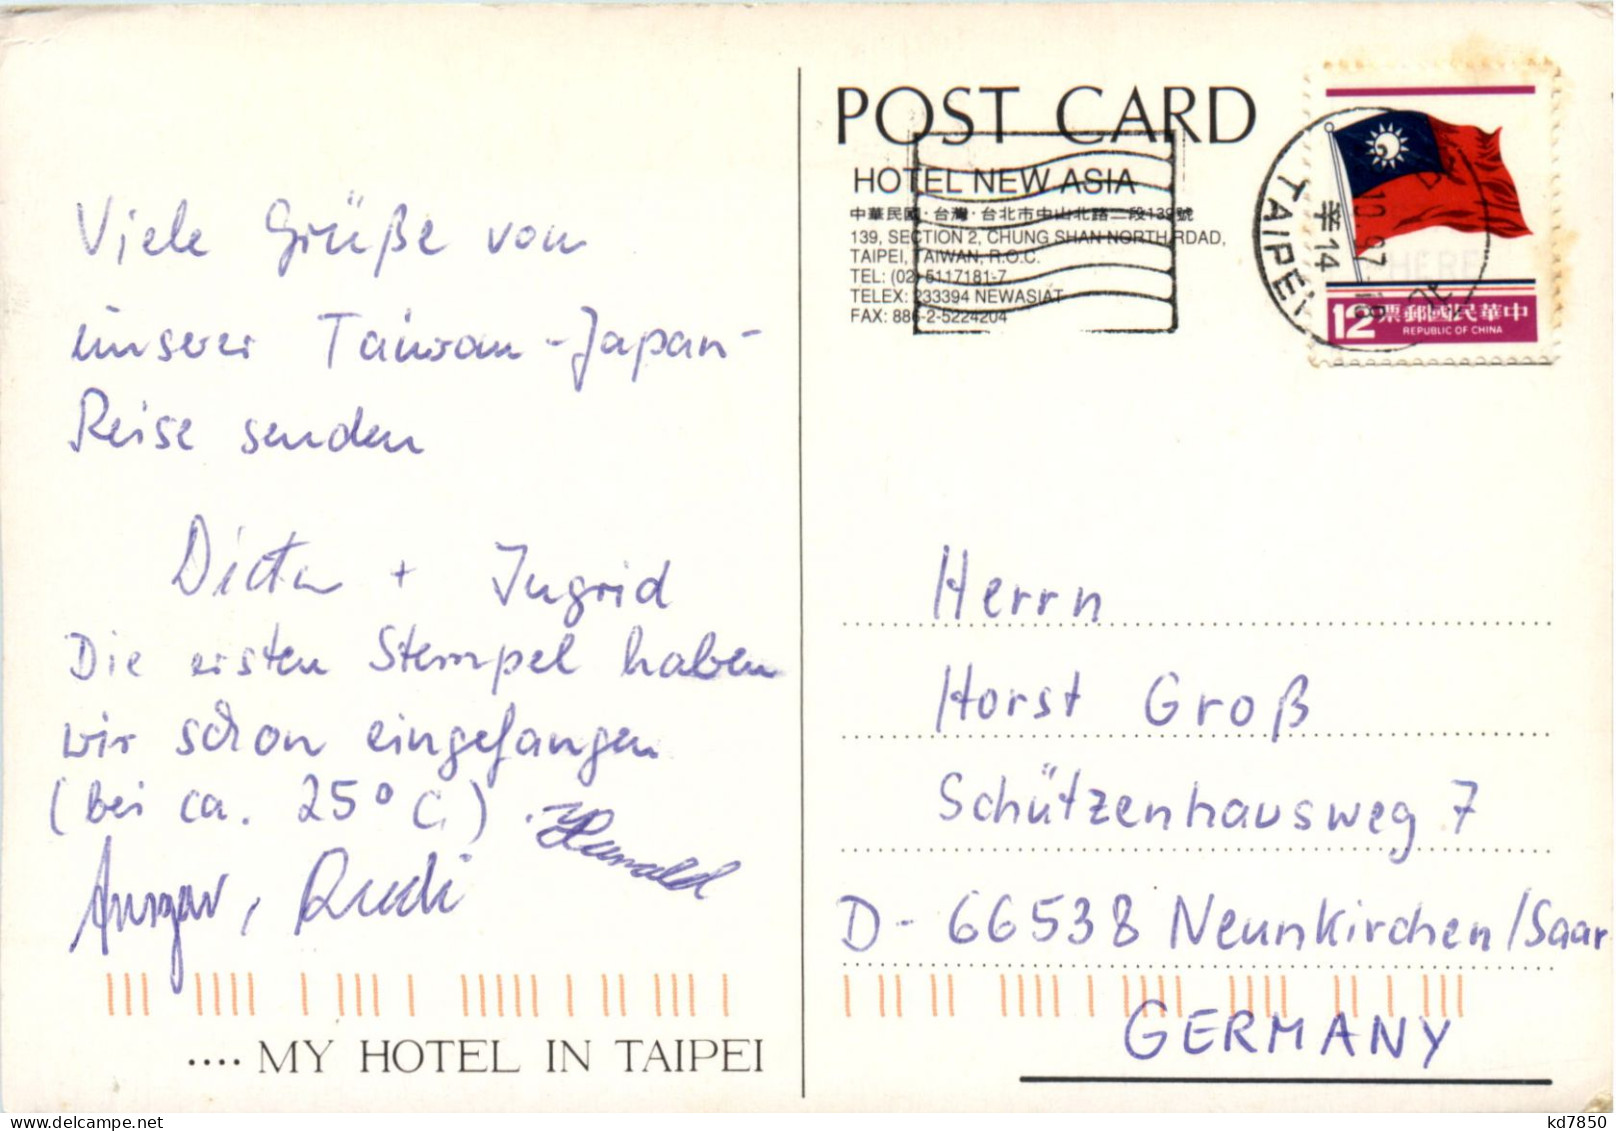 Viele Grüße von
unserer Taiwan-Japan-
Reise senden
Dieter + Ingrid
Die ersten Stempel haben
wir schon eingefangen
(bei ca. 25°C.)
Ansgar, Rudi
.... MY HOTEL IN TAIPEI
POST CARD
HOTEL NEW ASIA
中華民國·台灣·台北市中山北路二段139號
139, SECTION 2, CHUNG SHAN NORTH RDAD,
TAIPEI, TAIWAN, R.O.C.
TEL: (02) 5117181-7
TELEX: 233394 NEWASIAT
FAX: 886-2-5224204
TAIPEI
HERE
12 票郵國民華中
REPUBLIC OF CHINA
Herrn
Horst Groß
Schützenhausweg 7
D-66538 Neunkirchen/Saar
GERMANY
kd7850